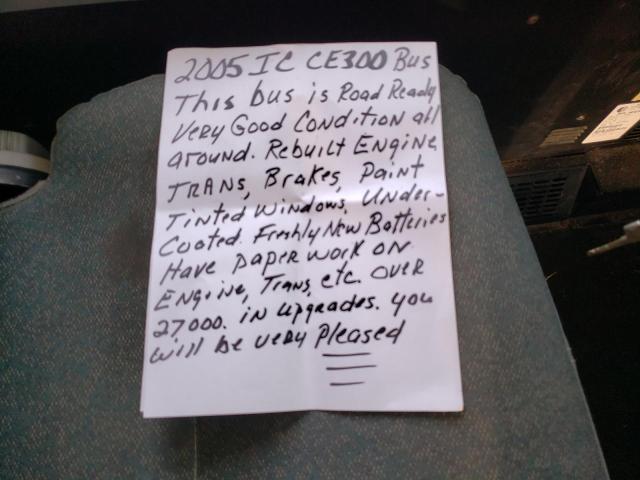 2005 IC CE300 Bus
This bus is Road Ready
Very Good Condition all
around. Rebuilt Engine
TRANS, Brakes, Paint
Tinted Windows, Under-
Coated. Freshly New Batteries
Have paper work on
Engine, Trans, etc. over
27000. in upgrades. you
will be very Pleased